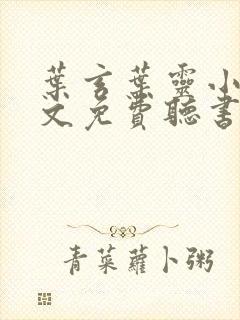 葉言葉靈小
文免費聽書
青菜蘿卜粥